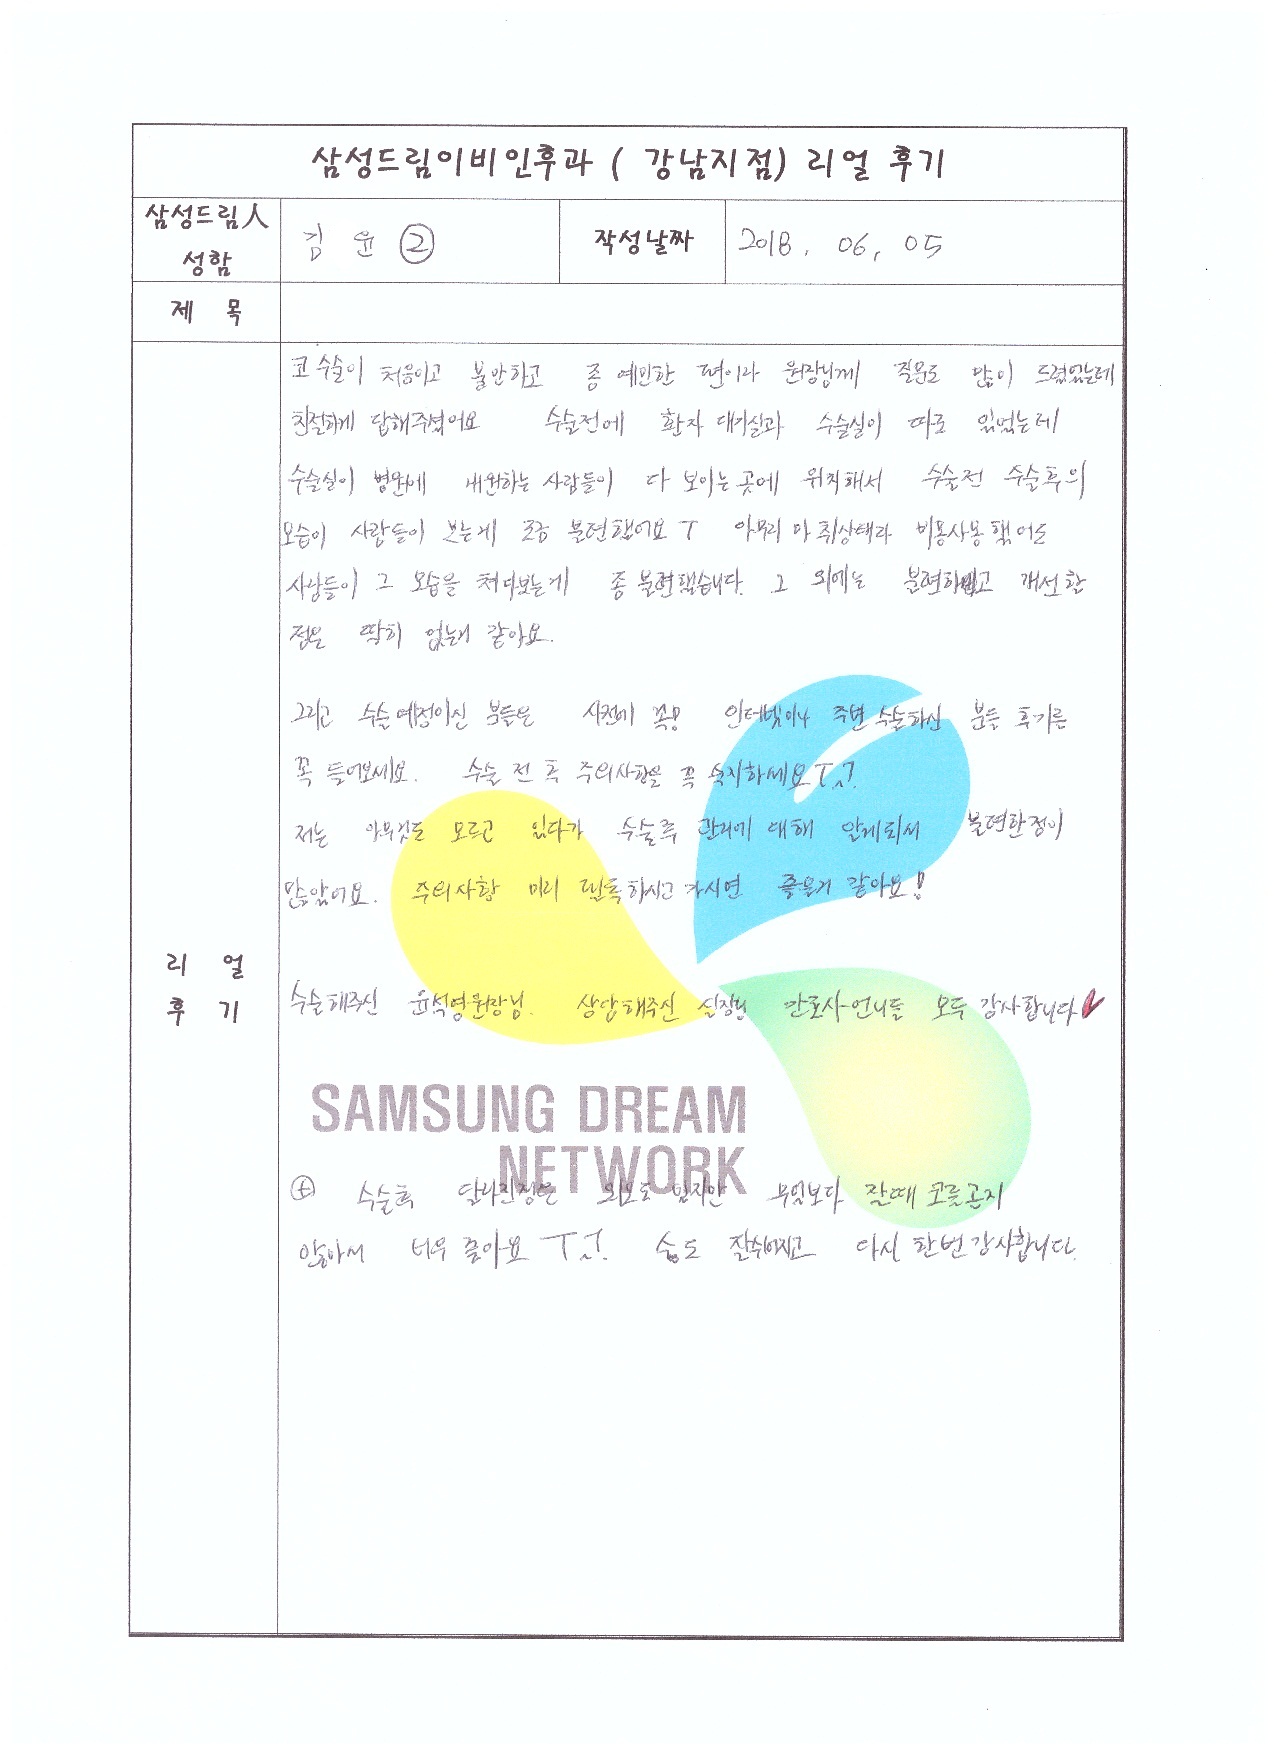 삼성드림이비인후과 ( 강남지점) 리얼 후기
삼성드림人
성함
김 윤 ②
작성날짜
2018. 06. 05
제 목
코 수술이 처음이고 불안하고 좀 예민한 편이라 원장님께 질문도 많이 드렸었는데
친절하게 답해주셨어요 수술전에 환자 대기실과 수술실이 따로 있었는데
수술실이 병원에 내원하는 사람들이 다 보이는 곳에 위치해서 수술전 수술후의
모습이 사람들이 보는게 조금 불편했어요 ㅜ 아무리 마취상태라 비몽사몽했어도
사람들이 그 모습을 쳐다보는게 좀 불편했습니다. 그 외에는 불편하고 개선할
점은 딱히 없는거 같아요.
그리고 수술예정이신 분들은 사전에 꼭! 인터넷이나 주변 수술하신 분들 후기를
꼭 들어보세요. 수술 전 후 주의사항을 꼭 숙지하세요 ㅜㅜ.
저는 아무것도 모르고 있다가 수술후 관리에 대해 알게되서 불편한점이
많았어요. 주의사항 미리 필독하시고 가시면 좋을거 같아요!
리 얼
후 기
수술해주신 윤석영원장님. 상담해주신 실장님 간호사언니들 모두 감사합니다
SAMSUNG DREAM
NETWORK
⊕ 수술후 달라진점은 외모도 있지만 무엇보다 잘때 코를골지
않아서 너무 좋아요 ㅜㅜ. 숨도 잘쉬어지고 다시 한번 감사합니다.